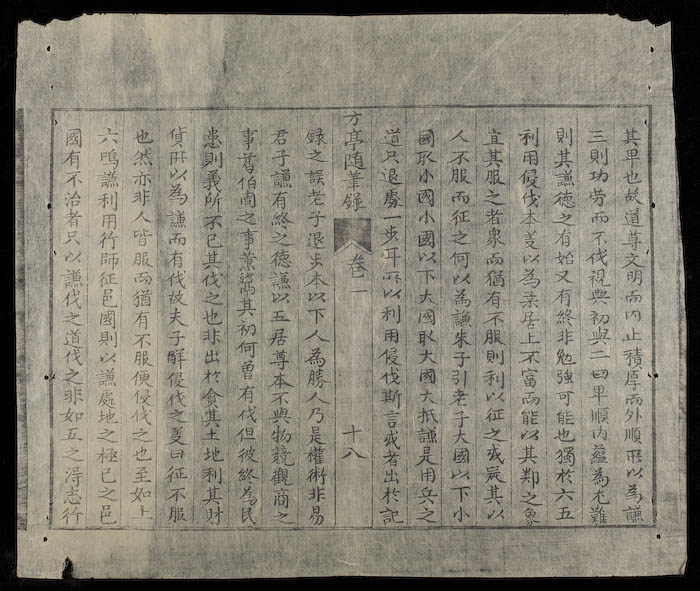 其卑也故道尊文明而内止積厚而外順所以為謙
三則功勞而不伐視與初與二四卑順内蘊為尤難
則其謙德之有始又有終非勉強可能也獨於六五
利用侵伐本義以為柔居上不富而能以其鄰之象
宜其服之者衆而猶有不服則利以征之或疑其以
人不服而征之何以為謙朱子引老子大國以下小
國取小國小國以下大國取大國大抵謙是用兵之
道只退處一步耳所以利用侵伐斯言或者出於記
方亭随筆録 卷一 十八
錄之誤老子退步本以下人為勝人乃是權術非易
君子謙有終之德謙以五居尊本不與物競觀商之
事葛伯周之事薰鬻其初何曾有伐但彼終為民
患則義所不已其伐之也非出於貪其土地利其財
貨所以為謙而有伐故夫子解侵伐之義曰征不服
也然亦非人皆服而猶有不服便侵伐之也至如上
六鳴謙利用行師征邑國則以謙處地之極已之邑
國有不治者只以謙伐之道伐之非如五之得志行